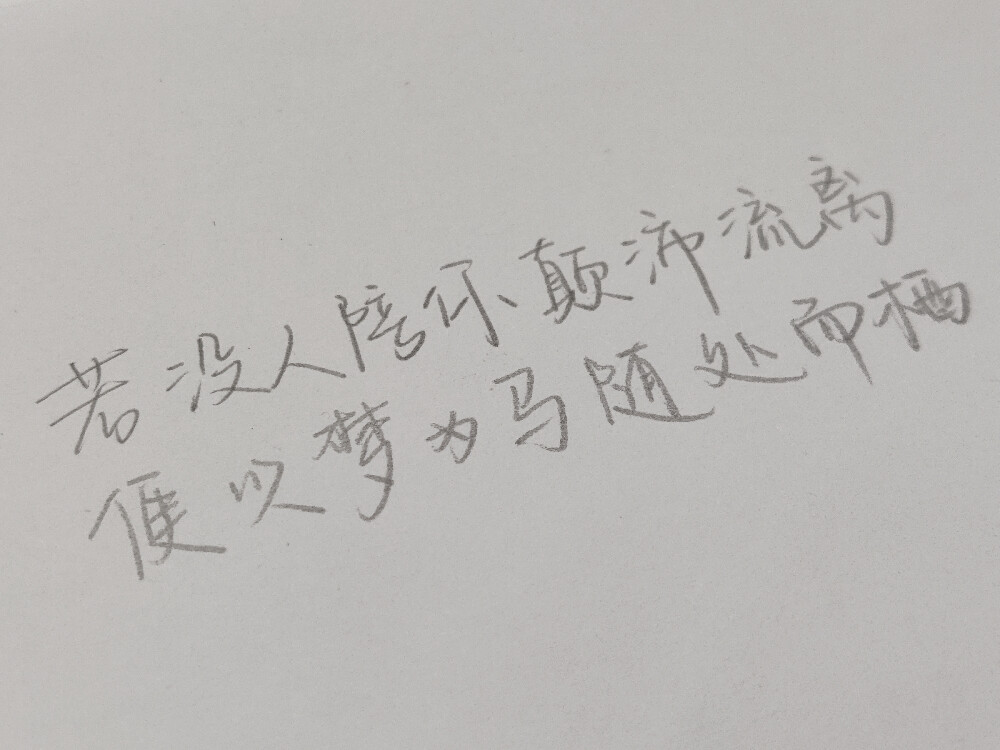 若没人陪你颠沛流离
便以梦为马随处而栖